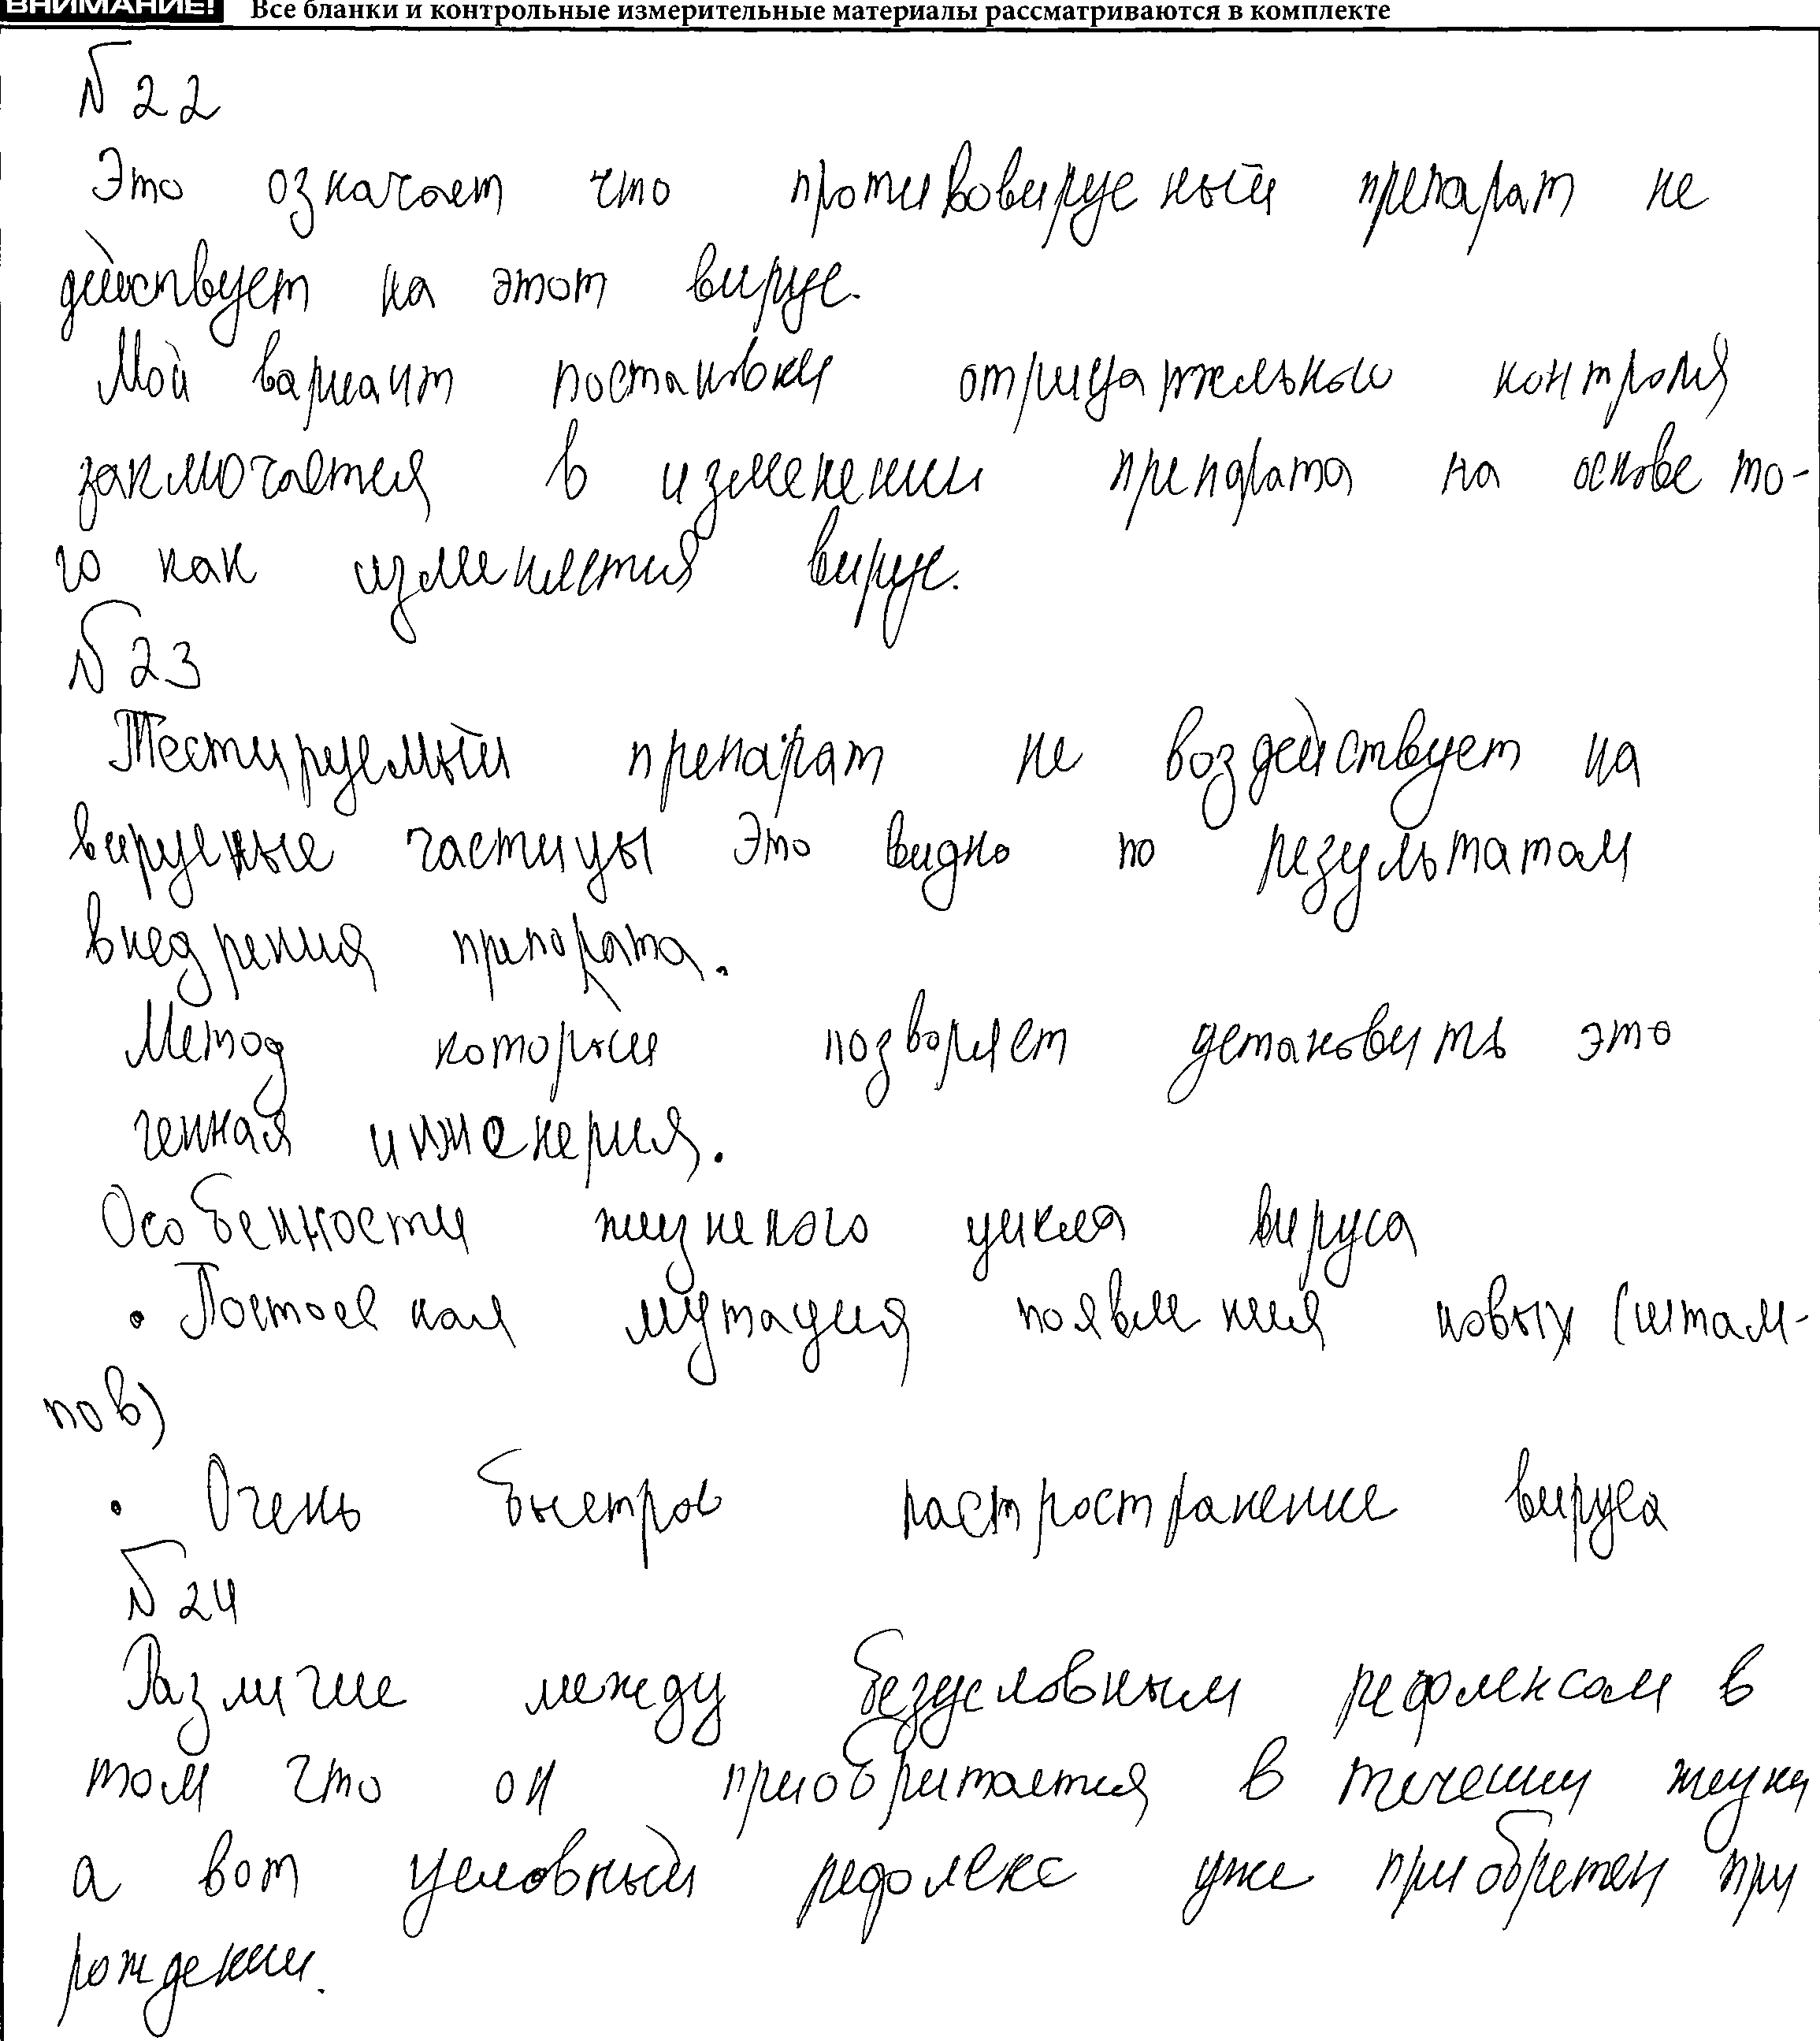 ВНИМАНИЕ! Все бланки и контрольные измерительные материалы рассматриваются в комплекте
№22
Это означает что противовирусный препарат не
действует на этот вирус.
Мой вариант постановки отрицательного контроля
заключается в изменении препарата на основе то-
го как изменяется вирус.
№23
Тестируемый препарат не воздействует на
вирусные частицы это видно по результатам
внедрения препората.
Метод который позволяет установить это
генная инженерия.
Особенности жизненого цикла вируса
• Постоеная мутация появления новых (штам-
пов)
• Очень быстрое растространение вируса
№24
Различие между безусловным рефлексом в
том что он приобритается в течении жизни
а вот условный рефлекс уже приобретен при
рождении.